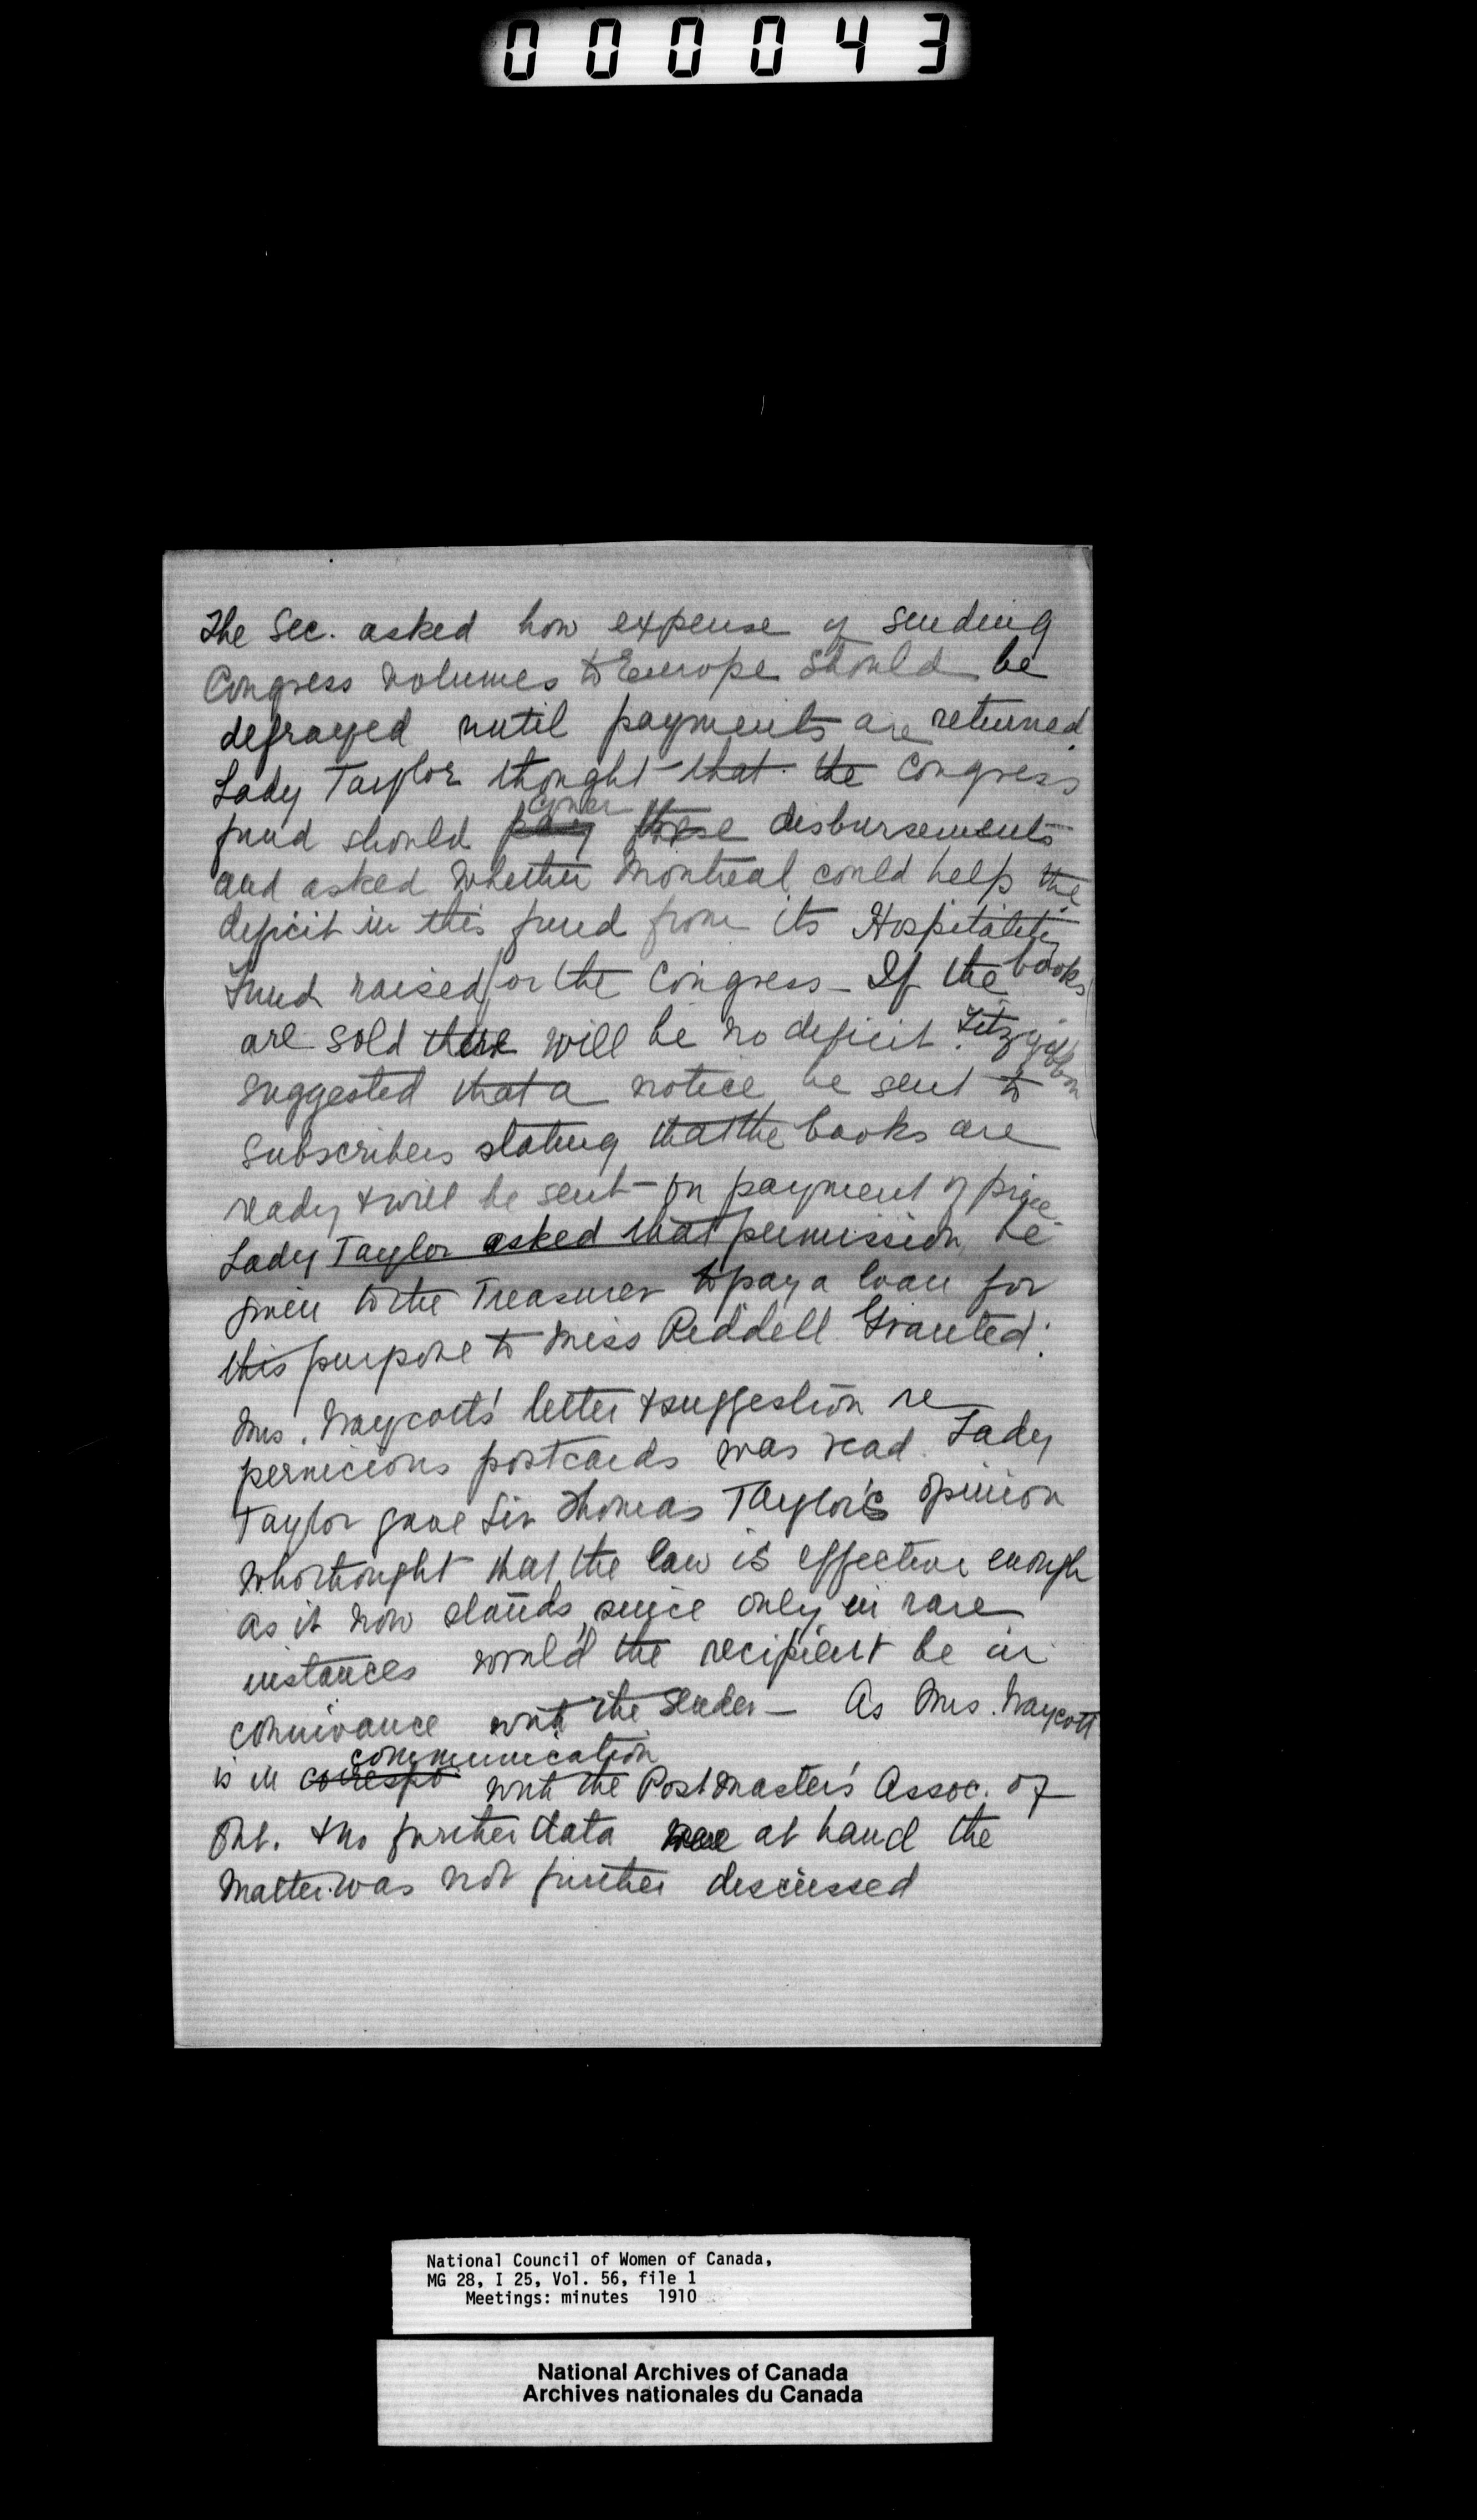 000043
The Sec. asked how expense of sending
Congress volumes to Europe should be
defrayed until payments are returned.
Lady Taylor thought that the Congress
fund should pay cover these disbursements
and asked whether Montreal could help the
deficit in this fund from its Hospitality
Fund raised for the Congress - If the books
are sold there will be no deficit. Fitzgibbon
suggested that a notice be sent to
subscribers stating that the books are
ready & will be sent on payment of price.
Lady Taylor asked that permission be
given to the Treasurer to pay a loan for
this purpose to Miss Riddell Granted.
Mrs. Waycott's letter & suggestion re
pernicious postcards was read. Lady
Taylor gave Sir Thomas Taylor's opinion
who thought that the law is effective enough
as it now stands, since only in rare
instances would the recipient be in
connivance with the sender - As Mrs. Waycott
is in correspo communication with the Postmasters' Assoc. of
Ont. & no further data were at hand the
matter was not further discussed
National Council of Women of Canada,
MG 28, I 25, Vol. 56, file 1
Meetings: minutes 1910
National Archives of Canada
Archives nationales du Canada